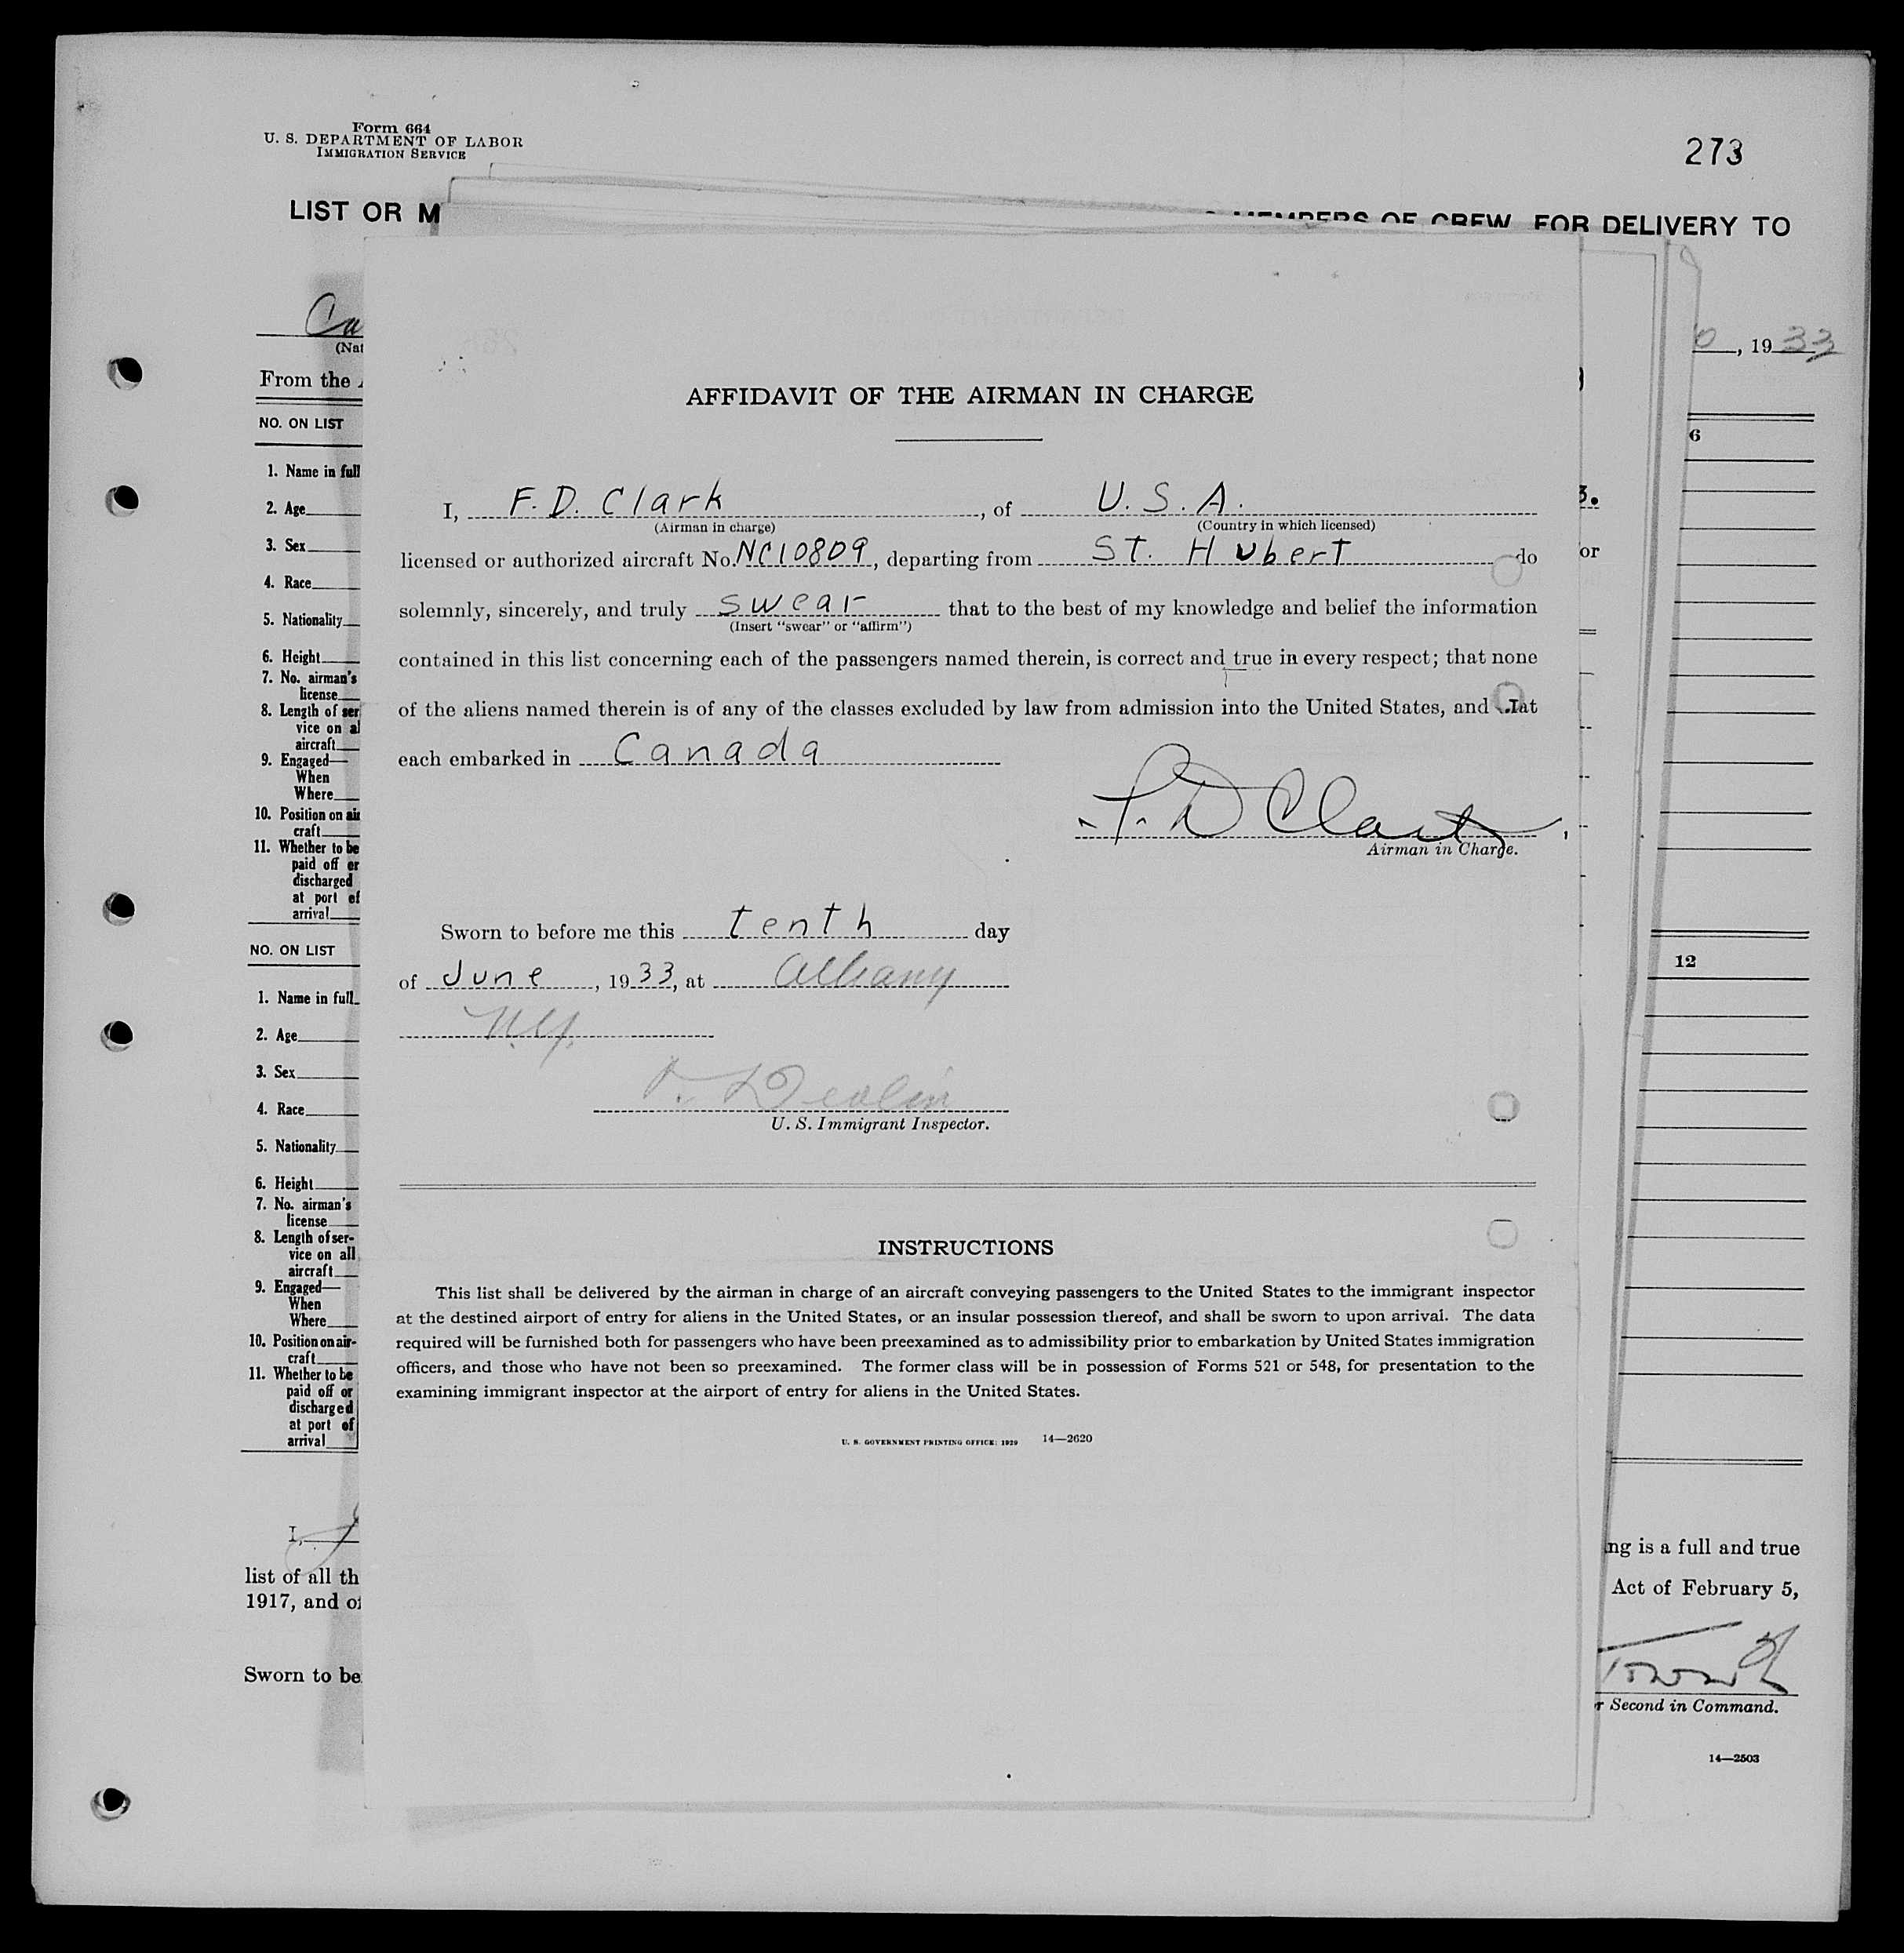 Form 664
U. S. DEPARTMENT OF LABOR
IMMIGRATION SERVICE
273
LIST OR M MEMBERS OF CREW, FOR DELIVERY TO
, 1933
From the
NO. ON LIST
6
1. Name in full
2. Age
3. Sex
4. Race
5. Nationality
6. Height
7. No. airman's
license
8. Length of ser
vice on al
aircraft
9. Engaged—
When
Where
10. Position on air
craft
11. Whether to be
paid off or
discharged
at port of
arrival
NO. ON LIST
12
1. Name in full
2. Age
3. Sex
4. Race
5. Nationality
6. Height
7. No. airman's
license
8. Length of ser-
vice on all
aircraft
9. Engaged—
When
Where
10. Position on air-
craft
11. Whether to be
paid off or
discharged
at port of
arrival
I,
ng is a full and true
list of all th
Act of February 5,
1917, and of
Sworn to be
r Second in Command.
14—2503
AFFIDAVIT OF THE AIRMAN IN CHARGE
I, F. D. Clark, of U. S. A.
(Airman in charge) (Country in which licensed)
licensed or authorized aircraft No. NC10809, departing from St. Hubert do
solemnly, sincerely, and truly swear that to the best of my knowledge and belief the information
(Insert "swear" or "affirm")
contained in this list concerning each of the passengers named therein, is correct and true in every respect; that none
of the aliens named therein is of any of the classes excluded by law from admission into the United States, and at
each embarked in Canada
F. D Clark,
Airman in Charge.
Sworn to before me this tenth day
of June, 1933, at Albany
N.Y.
Devlin
U. S. Immigrant Inspector.
INSTRUCTIONS
This list shall be delivered by the airman in charge of an aircraft conveying passengers to the United States to the immigrant inspector
at the destined airport of entry for aliens in the United States, or an insular possession thereof, and shall be sworn to upon arrival. The data
required will be furnished both for passengers who have been preexamined as to admissibility prior to embarkation by United States immigration
officers, and those who have not been so preexamined. The former class will be in possession of Forms 521 or 548, for presentation to the
examining immigrant inspector at the airport of entry for aliens in the United States.
U. S. GOVERNMENT PRINTING OFFICE: 1929 14—2620